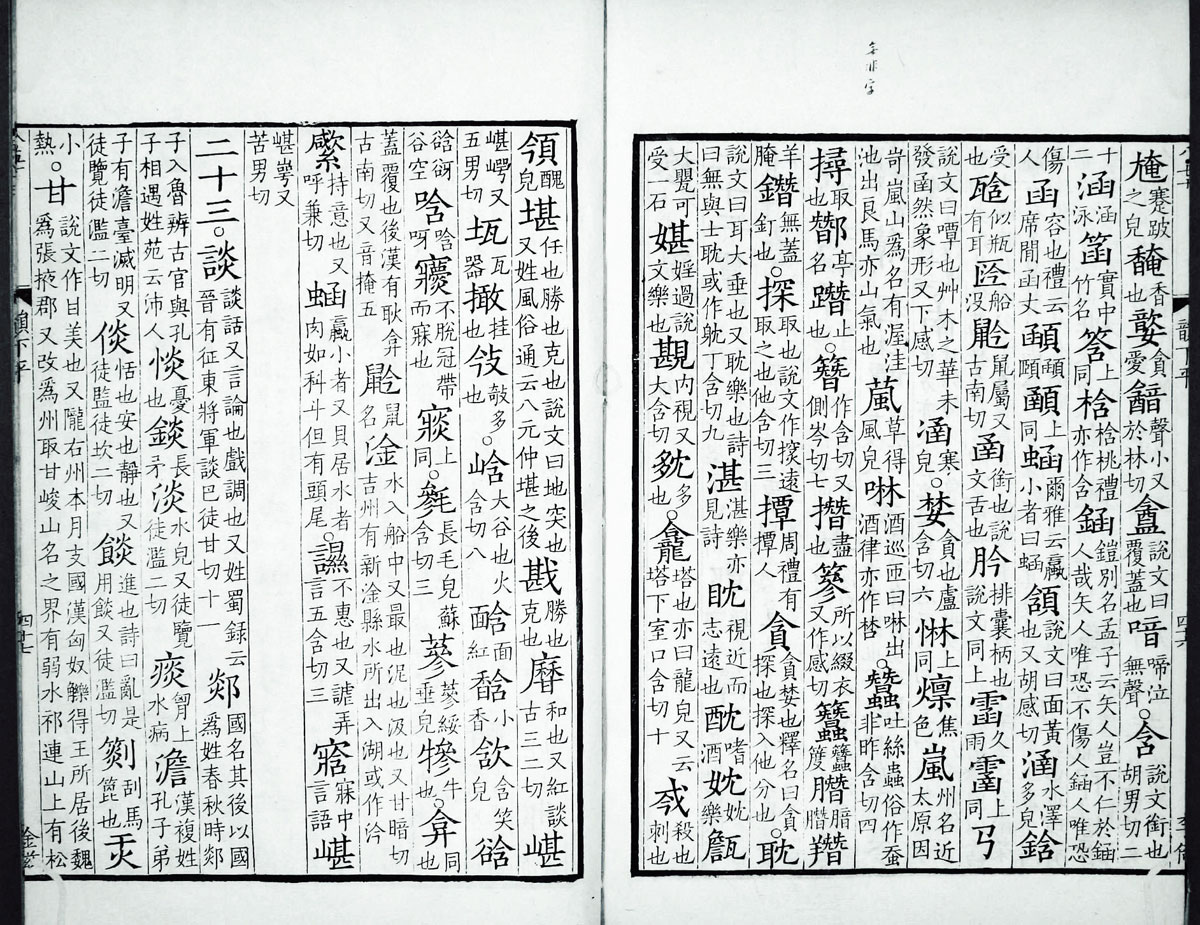 㾑蹇跛之皃馣香也㜝貪愛韽聲小又於林切盦說文曰覆蓋也喑啼泣無聲○含說文銜也胡男切二
十二涵涵泳筨實中竹名答上同梒梒桃禮亦作含鋡鎧別名孟子云矢人豈不仁於鋡人哉矢人唯恐不傷人鋡人唯恐
傷人函容也禮云席間函丈顄顄頤顄上同蜬爾雅云蠃小者曰蜬頷說文曰面黃也又胡感切涵水澤多皃䤴
受也𤬯似瓶有耳匼船沒䶃鼠屬又古南切圅銜也說文舌也肣排囊柄也說文同上霤久雨霤上同㔾
說文曰嘾也艸木之華未發函然象形又下感切 涵寒皃○婪貪也盧含切六惏上同燣焦色嵐州名近太原因
岢嵐山爲名有渥洼池出良馬亦山氣也葻草得風皃啉酒巡匝曰啉出酒律亦作㗜○蠶吐絲蟲俗作蚕非昨含切四
撏取也鄼亭名䠉止也○簪作含切又側岑切七撍盡也篸所以綴衣又作感切𥷬𥷬䈜臢腤臢䐶
羊腌鐕無蓋釘也○探取也說文作㨴遠取之也他含切三撢周禮有撢人貪貪婪也釋名曰貪探也探入他分也○耽
說文曰耳大垂也又耽樂也詩曰無與士耽或作躭丁含切九湛湛樂亦見詩眈視近而志遠也酖嗜酒妉妉樂㽎
大甖可受一石媅婬過說文樂也䫴內視又大含切𡖓多也○龕塔也亦曰龍皃又云塔下室口含切十㦰殺也刺也
領醜皃堪任也勝也克也說文曰地突也又姓風俗通云八元仲堪之後戡勝也克也䃺和也又紅談古三二切嵁
嵁崿又五男切㼜瓦器㨔挂也㪁敲多也○㟏大谷也火含切八䤴面紅馠小香欱含笑皃谽
谽谺谷空唅唅呀㝲不脫冠帶而寐也㝲上同○毿長毛皃蘇含切三蔘蔘綏垂皃犙牛同○弇也
蓋覆也後漢有耿弇古南切又音掩五䶃鼠名淦水入船中又最也泥也汲也又甘暗切吉州有新淦縣水所出入湖或作汵
㽐持意也又呼兼切蜬蠃小者又貝居水者肉如科斗但有頭尾○䜟不惠也又謔弄言五含切三㝪寐中言語嵁
嵁崿又苦男切
二十三○談談話又言論也戲調也又姓蜀錄云晉有征東將軍談巴徒甘切十一郯國名其後以國爲姓春秋時郯
子入魯辨古官與孔子相遇姓苑云沛人惔憂也錟長矛淡水皃又徒覽徒濫二切痰胷上水病澹漢複姓孔子弟
子有澹臺滅明又徒覽徒濫二切倓恬也安也靜也又徒監徒坎二切餤進也詩曰亂是用餤又徒濫切剡刮馬篦也㶣
小熱○甘說文作甘美也又隴右州本月支國漢匈奴觻得王所居後魏爲張掖郡又改爲州取甘峻山名之界有弱水祁連山上有松